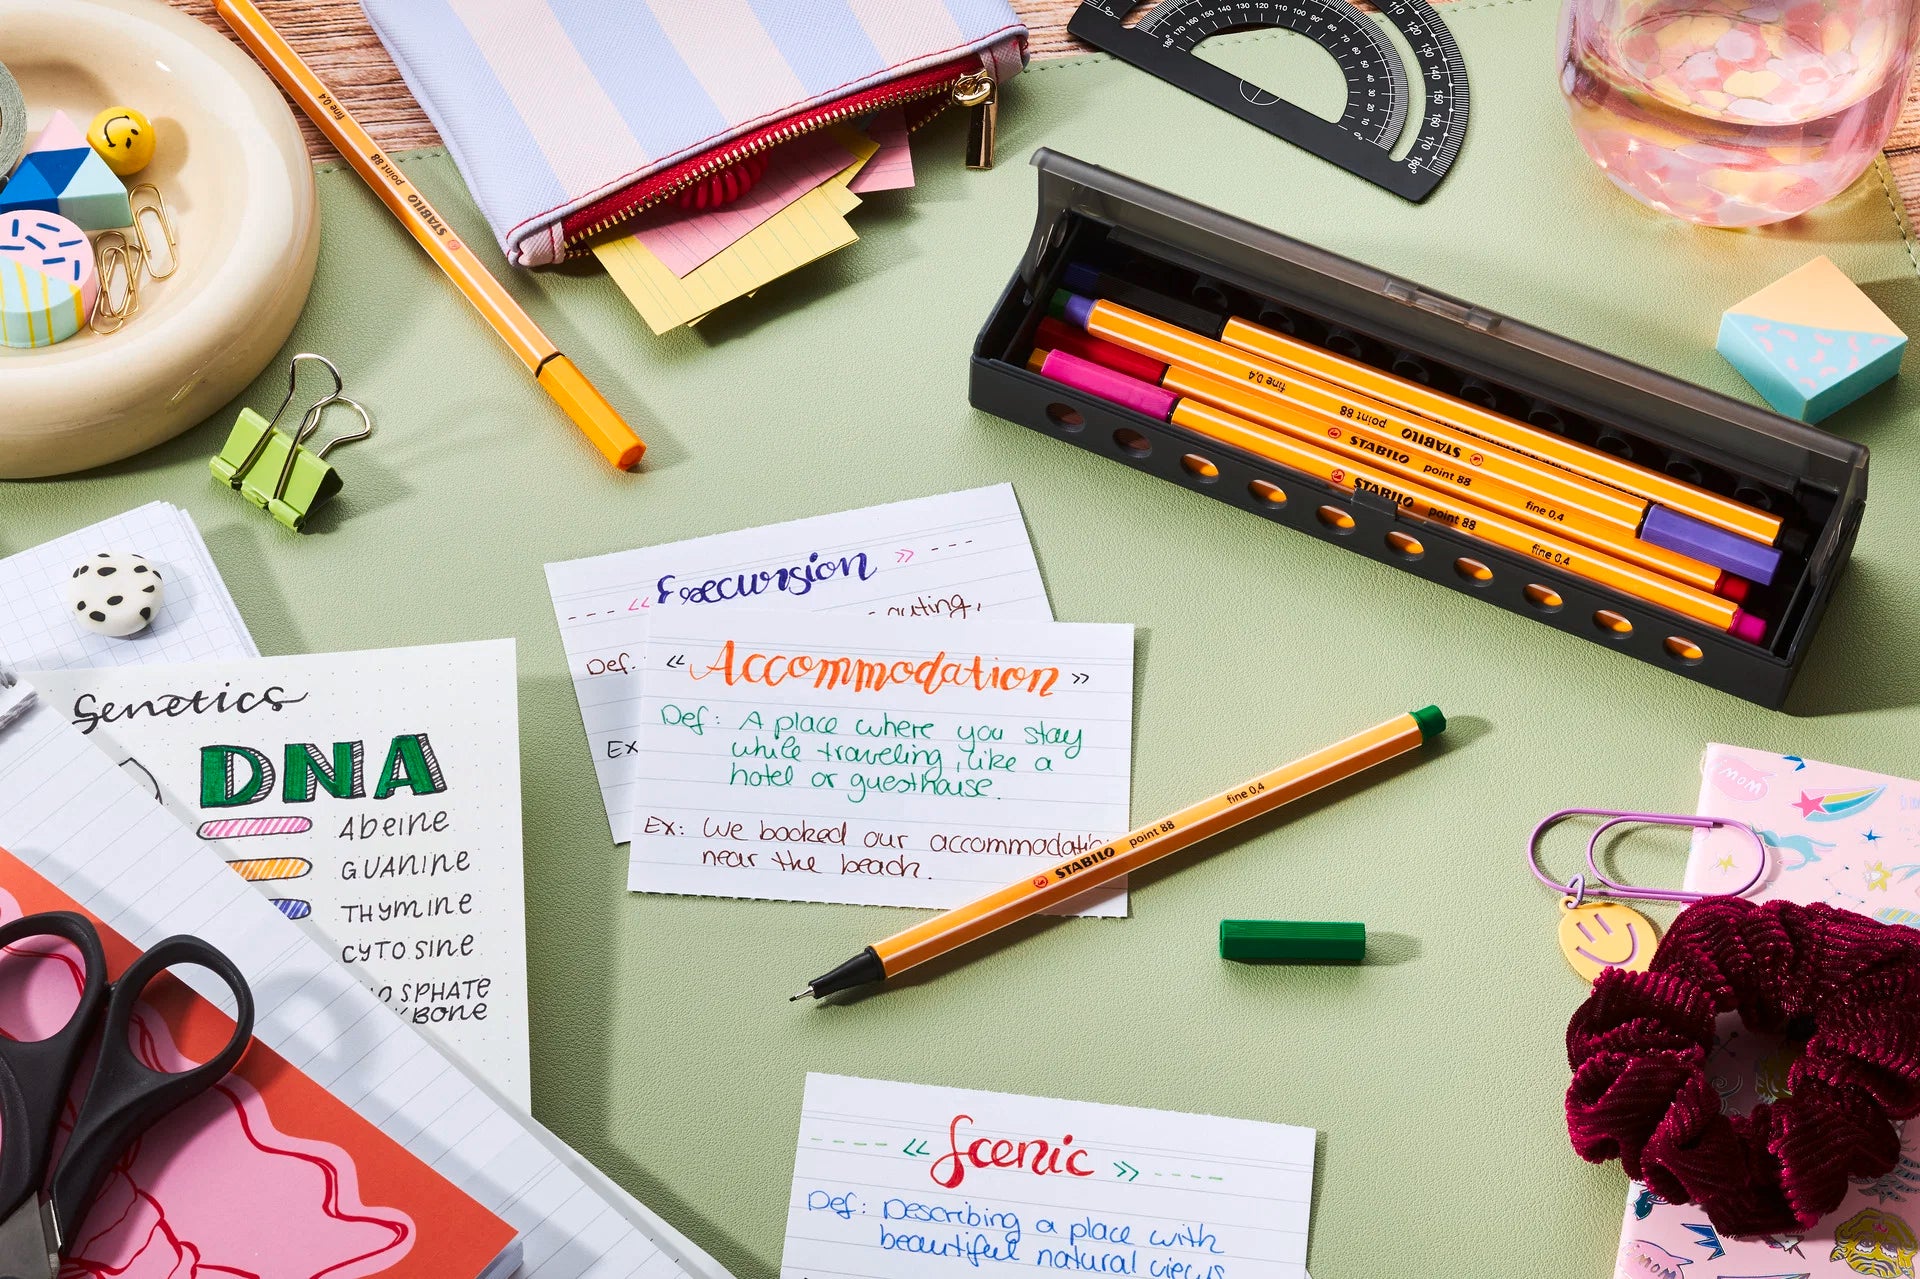 fine 0.4
point 88
STABILO
fine 0.4
point 88
STABILO
STABILO
point 88
fine 0.4
STABILO
point 88
fine 0.4
<< Excursion >>
Def.
Ex
<< Accommodation >>
Def: A place where you stay
while traveling, like a
hotel or guesthouse.
Ex: We booked our accommodatio
near the beach.
STABILO point 88 fine 0.4
Genetics
DNA
Abeine
GUANINE
THYMINE
CYTOSINE
OSPHATE
KBONE
<< Scenic >>
Def: Describing a place with
beautiful natural views
WOW
WOW